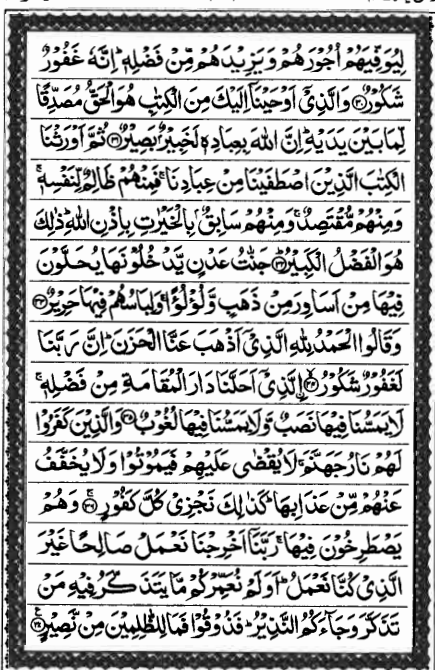 لِيُوَفِّيَهُمْ اُجُوْرَهُمْ وَيَزِيْدَهُمْ مِّنْ فَضْلِهٖ ؕ اِنَّهٗ غَفُوْرٌ
شَكُوْرٌ ﴿۳۰﴾ وَالَّذِیْۤ اَوْحَيْنَاۤ اِلَيْكَ مِنَ الْكِتٰبِ هُوَ الْحَقُّ مُصَدِّقًا
لِّمَا بَيْنَ يَدَيْهِ ؕ اِنَّ اللّٰهَ بِعِبَادِهٖ لَخَبِيْرٌۢ بَصِيْرٌ ﴿۳۱﴾ ثُمَّ اَوْرَثْنَا
الْكِتٰبَ الَّذِيْنَ اصْطَفَيْنَا مِنْ عِبَادِنَا ۚ فَمِنْهُمْ ظَالِمٌ لِّنَفْسِهٖ ۚ
وَمِنْهُمْ مُّقْتَصِدٌ ۚ وَمِنْهُمْ سَابِقٌۢ بِالْخَيْرٰتِ بِاِذْنِ اللّٰهِ ؕ ذٰلِكَ
هُوَ الْفَضْلُ الْكَبِيْرُ ﴿۳۲﴾ جَنّٰتُ عَدْنٍ يَّدْخُلُوْنَهَا يُحَلَّوْنَ
فِيْهَا مِنْ اَسَاوِرَ مِنْ ذَهَبٍ وَّلُؤْلُؤًا ۚ وَلِبَاسُهُمْ فِيْهَا حَرِيْرٌ ﴿۳۳﴾
وَقَالُوا الْحَمْدُ لِلّٰهِ الَّذِیْۤ اَذْهَبَ عَنَّا الْحَزَنَ ؕ اِنَّ رَبَّنَا
لَغَفُوْرٌ شَكُوْرٌ ﴿۳۴﴾ الَّذِیْۤ اَحَلَّنَا دَارَ الْمُقَامَةِ مِنْ فَضْلِهٖ ۚ
لَا يَمَسُّنَا فِيْهَا نَصَبٌ وَّلَا يَمَسُّنَا فِيْهَا لُغُوْبٌ ﴿۳۵﴾ وَالَّذِيْنَ كَفَرُوْا
لَهُمْ نَارُ جَهَنَّمَ ۚ لَا يُقْضٰی عَلَيْهِمْ فَيَمُوْتُوْا وَلَا يُخَفَّفُ
عَنْهُمْ مِّنْ عَذَابِهَا ؕ كَذٰلِكَ نَجْزِیْ كُلَّ كَفُوْرٍ ﴿۳۶﴾ وَهُمْ
يَصْطَرِخُوْنَ فِيْهَا ۚ رَبَّنَاۤ اَخْرِجْنَا نَعْمَلْ صَالِحًا غَيْرَ
الَّذِیْ كُنَّا نَعْمَلُ ؕ اَوَلَمْ نُعَمِّرْكُمْ مَّا يَتَذَكَّرُ فِيْهِ مَنْ
تَذَكَّرَ وَجَآءَكُمُ النَّذِيْرُ ؕ فَذُوْقُوْا فَمَا لِلظّٰلِمِيْنَ مِنْ نَّصِيْرٍ ﴿۳۷﴾